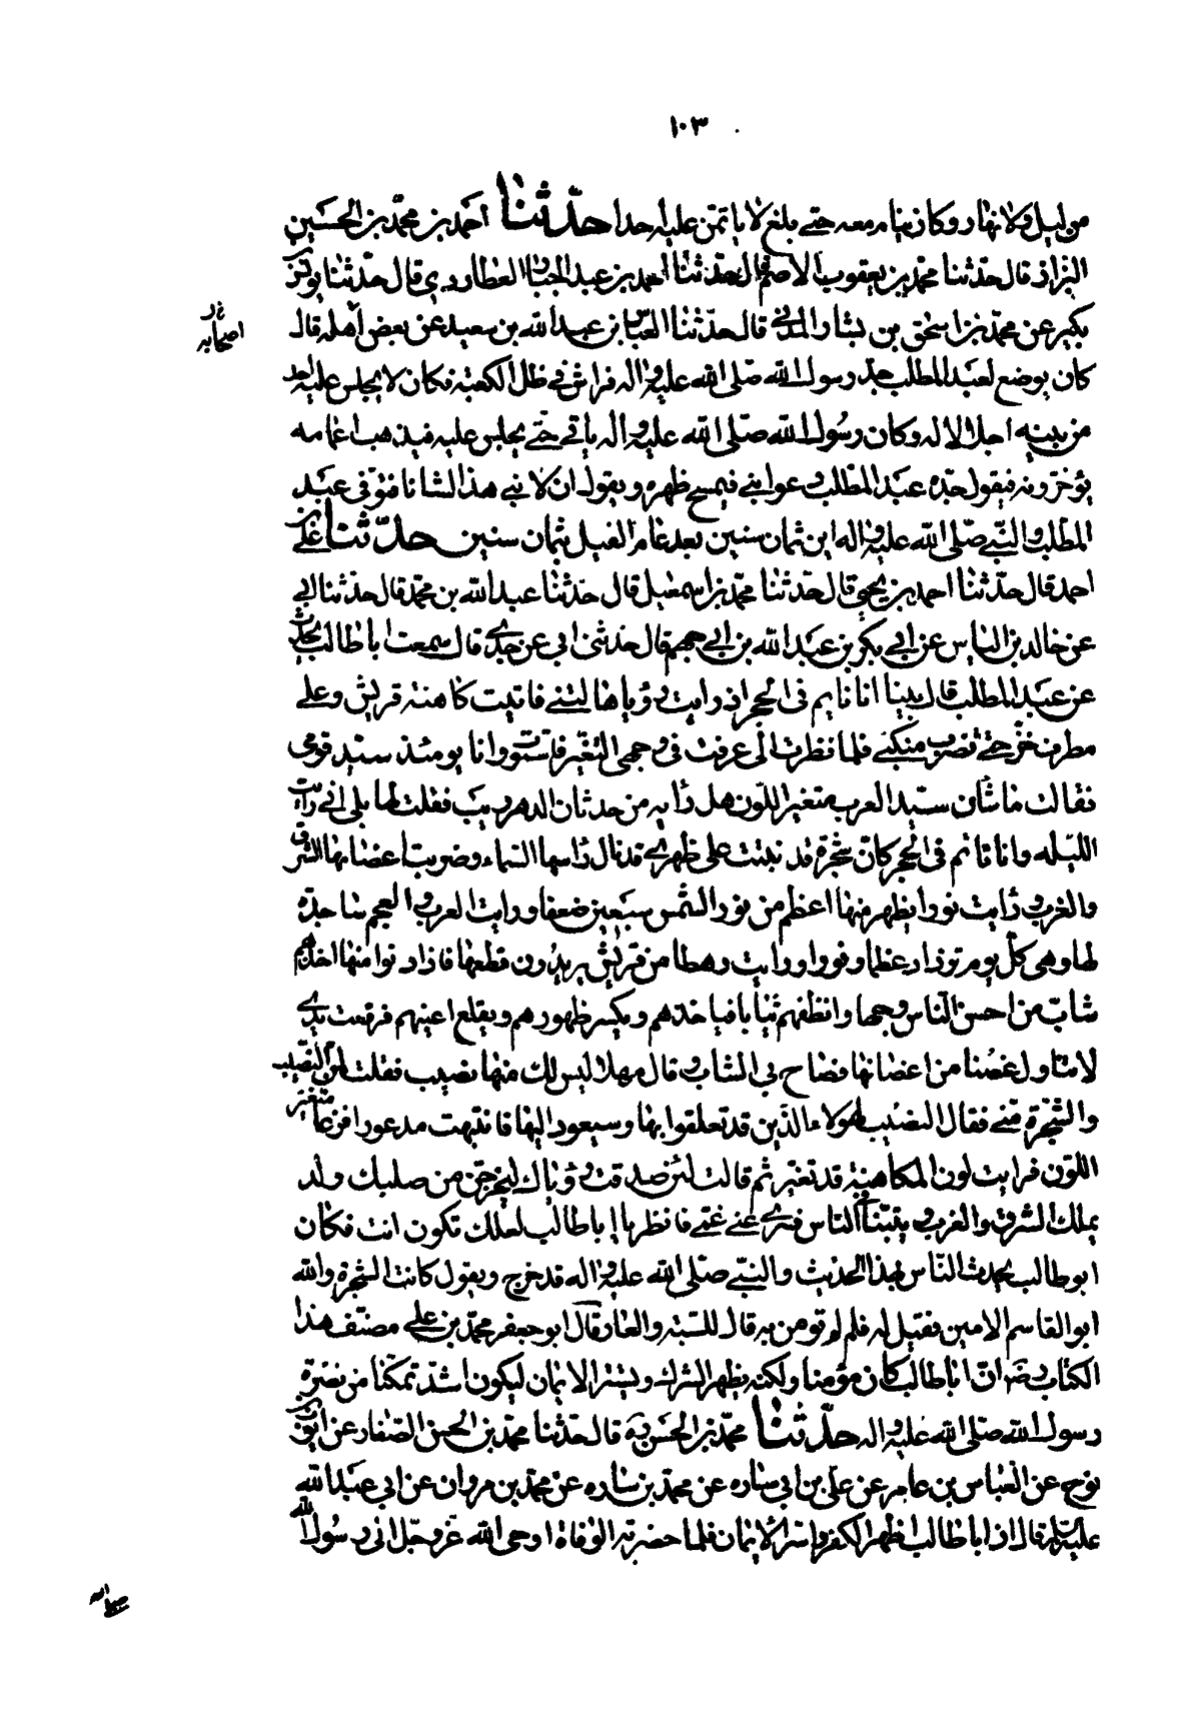 ١٠٣
من ليل ولا نهار وكان ينام معه حتى بلغ لا ياتمن عليه احدا حدّثنا احمد بن محمّد بن الحسين
البزاز قال حدّثنا محمّد بن يعقوب الاصم قال حدّثنا احمد بن عبد الجبار العطاردي قال حدّثنا يونس بن
بكير عن محمّد بن اسحق بن يسار المدني قال حدّثنا العباس بن عبد الله بن سعيد عن بعض اهله قال
اصحابه
كان يوضع لعبد المطلب جد رسول الله صلى الله عليه واله فراش في ظل الكعبة فكان لا يجلس عليه احد
من بنيه اجلالا له وكان رسول الله صلى الله عليه واله ياتي حتى يجلس عليه فيذهب اعمامه
يؤخرونه فيقول جده عبد المطلب دعوا ابني فيمسح ظهره ويقول ان لابني هذا لشانا فتوفى عبد
المطلب والنبي صلى الله عليه واله ابن ثمان سنين بعد عام الفيل بثمان سنين حدّثنا علي بن
احمد قال حدّثنا احمد بن يحيى قال حدّثنا محمّد بن اسمعيل قال حدّثنا عبد الله بن محمّد قال حدّثنا ابي
عن خالد بن الياس عن ابي بكر بن عبد الله بن ابي جهم قال حدثني ابي عن جدي قال سمعت ابا طالب يحدث
عن عبد المطلب قال بينا انا نايم في الحجر اذ رايت رؤيا هالتني فاتيت كاهنة قريش وعلي
مطرف خز وجمتي تضرب منكبي فلما نظرت الي عرفت في وجهي التغير فاستوت وانا يومئذ سيد قومي
فقالت ما شان سيد العرب متغير اللون هل رابه من حدثان الدهر ريب فقلت لها بلى اني رايت
الليله وانا نائم في الحجر كان شجرة قد نبتت على ظهري قد نال راسها السماء وضربت اغصانها الشرق
والغرب ورايت نورا يظهر منها اعظم من نور الشمس سبعين ضعفا ورايت العرب والعجم ساجدة
لها وهي كل يوم تزداد عظما ونورا ورايت رهطا من قريش يريدون قطعها فاذا دنوا منها اخذهم
شاب من احسن الناس وجها وانظفهم ثيابا فياخذهم ويكسر ظهورهم ويقلع اعينهم فرفعت يدي
لاتناول غصنا من اغصانها فصاح بي الشاب وقال مهلا ليس لك منها نصيب فقلت لمن النصيب
والشجرة مني فقال النصيب لهولاء الذين قد تعلقوا بها وسيعود اليها فانتبهت مذعورا فزعا متغير
اللون فرايت لون الكاهنة قد تغير ثم قالت لئن صدقت رؤياك ليخرجن من صلبك ولد
يملك الشرق والغرب ويتنبأ في الناس فسري عني غمي فانظر يا ابا طالب لعلك تكون انت فكان
ابو طالب يحدث الناس بهذا الحديث والنبي صلى الله عليه واله قد خرج ويقول كانت الشجرة والله
ابو القاسم الامين فقيل له فلم لم تومن به قال للسبة والعار قال ابو جعفر محمّد بن علي مصنف هذا
الكتاب رض ان ابا طالب كان مؤمنا ولكنه يظهر الشرك ويستر الايمان ليكون اشد تمكنا من نصرة
رسول الله صلى الله عليه واله حدّثنا محمّد بن الحسن ره قال حدّثنا محمّد بن الحسن الصفار عن ايوب بن
نوح عن العباس بن عامر عن علي بن ابي ساره عن محمّد بن ساره عن محمّد بن مروان عن ابي عبد الله
عليه السلام قال ان ابا طالب اظهر الكفر واسر الايمان فلما حضرته الوفاة اوحى الله عز وجل الى رسول الله
صلى الله